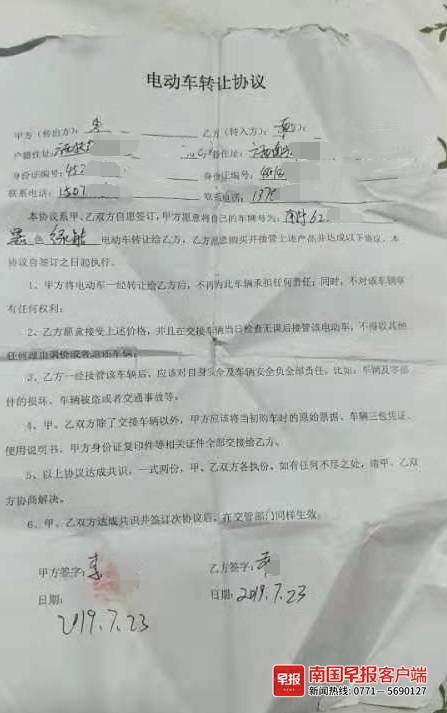 电动车转让协议
甲方（转出方）： 乙方（转入方）：
户籍住址： 住址：
身份证编号：452 身份证编号：
联系电话：1507 联系电话：1378
本协议系甲、乙双方自愿签订，甲方愿意将自己的车牌号为：
黑色绿能电动车转让给乙方，乙方愿意购买并接管上述产品并达成以下协议。本
协议自签订之日起执行。
1、甲方将电动车一经转让给乙方后，不再为此车辆承担任何责任；同时，不对该车辆享
有任何权利；
2、乙方愿意接受上述价格，并且在交接车辆当日检查无误后接管该电动车，不得以其他
任何理由
3、乙方一经接管该车辆后，应该对自身安全及车辆安全负全部责任，比如：车辆及零部
件的损坏、车辆被盗或者交通事故等；
4、甲、乙双方除了交接车辆以外，甲方应该将当初购车时的原始票据、车辆三包凭证、
使用说明书、甲方身份证复印件等相关证件全部交接给乙方。
5、以上协议达成共识，一式两份，甲、乙双方各执份，如有任何不尽之处，请甲、乙双
方协商解决。
6、甲、乙双方达成共识并签订次协议后，在交管部门同样生效。
甲方签字： 乙方签字：
日期： 日期：2019.7.23
2019.7.23
早报 南国早报客户端
新闻热线：0771-5690127